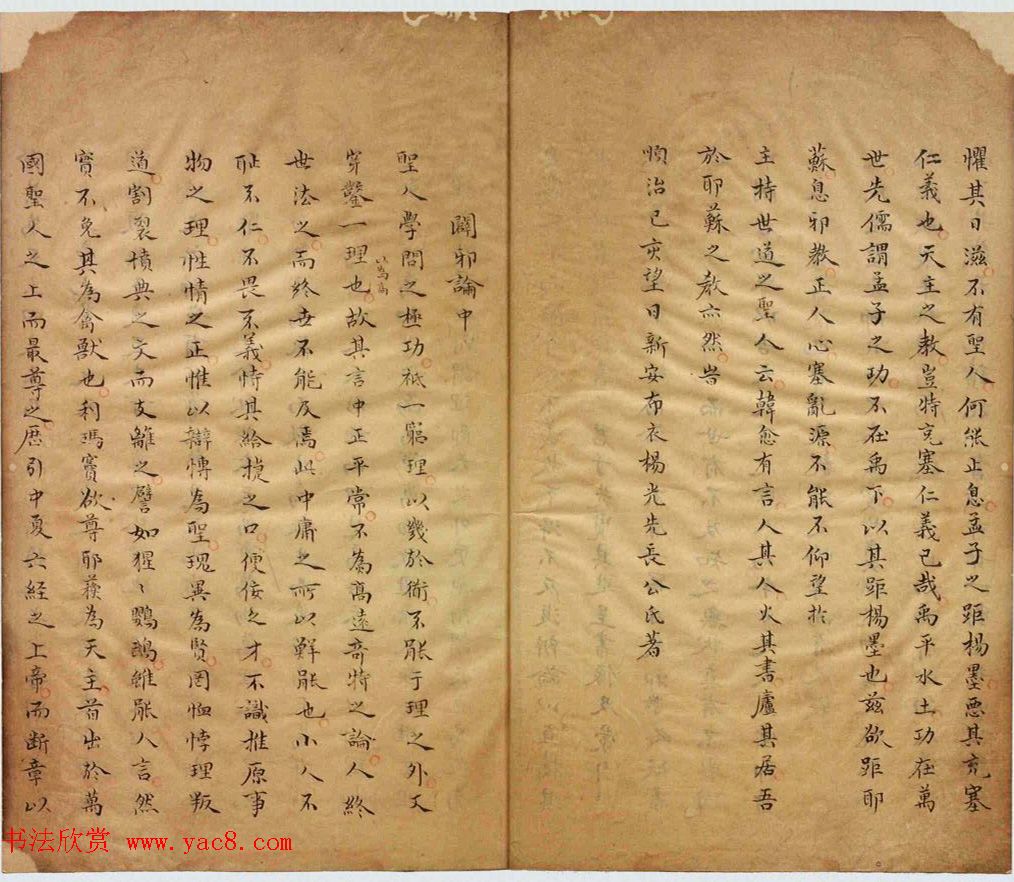 懼其日滋不有聖人何能止息孟子之距楊墨惡其充塞
仁義也天主之教豈特充塞仁義已哉禹平水土功在萬
世先儒謂孟子之功不在禹下以其距楊墨也茲欲距耶
蘇息邪教正人心塞亂源不能不仰望於
主持世道之聖人云韓愈有言人其人火其書廬其居吾
於耶蘇之教亦然旹
順治己亥望日新安布衣楊光先長公氏著
闢邪論中
聖人學問之極功祇一窮理以幾於衜不能于理之外又
穿鑿一理以為高也故其言中正平常不為高遠奇特之論人終
世法之而終世不能及焉此中庸之所以鮮能也小人不
恥不仁不畏不義恃其給捷之口便佞之才不識推原事
物之理性情之正惟以辯博為聖瑰異為賢罔恤悖理叛
道割裂墳典之文而支離之譬如猩〻鸚鵡雖能人言然
實不免其為禽獸也利瑪竇欲尊耶蘇為天主首出於萬
國聖人之上而最尊之歷引中夏六經之上帝而斷章以
书法欣赏 www.yac8.com